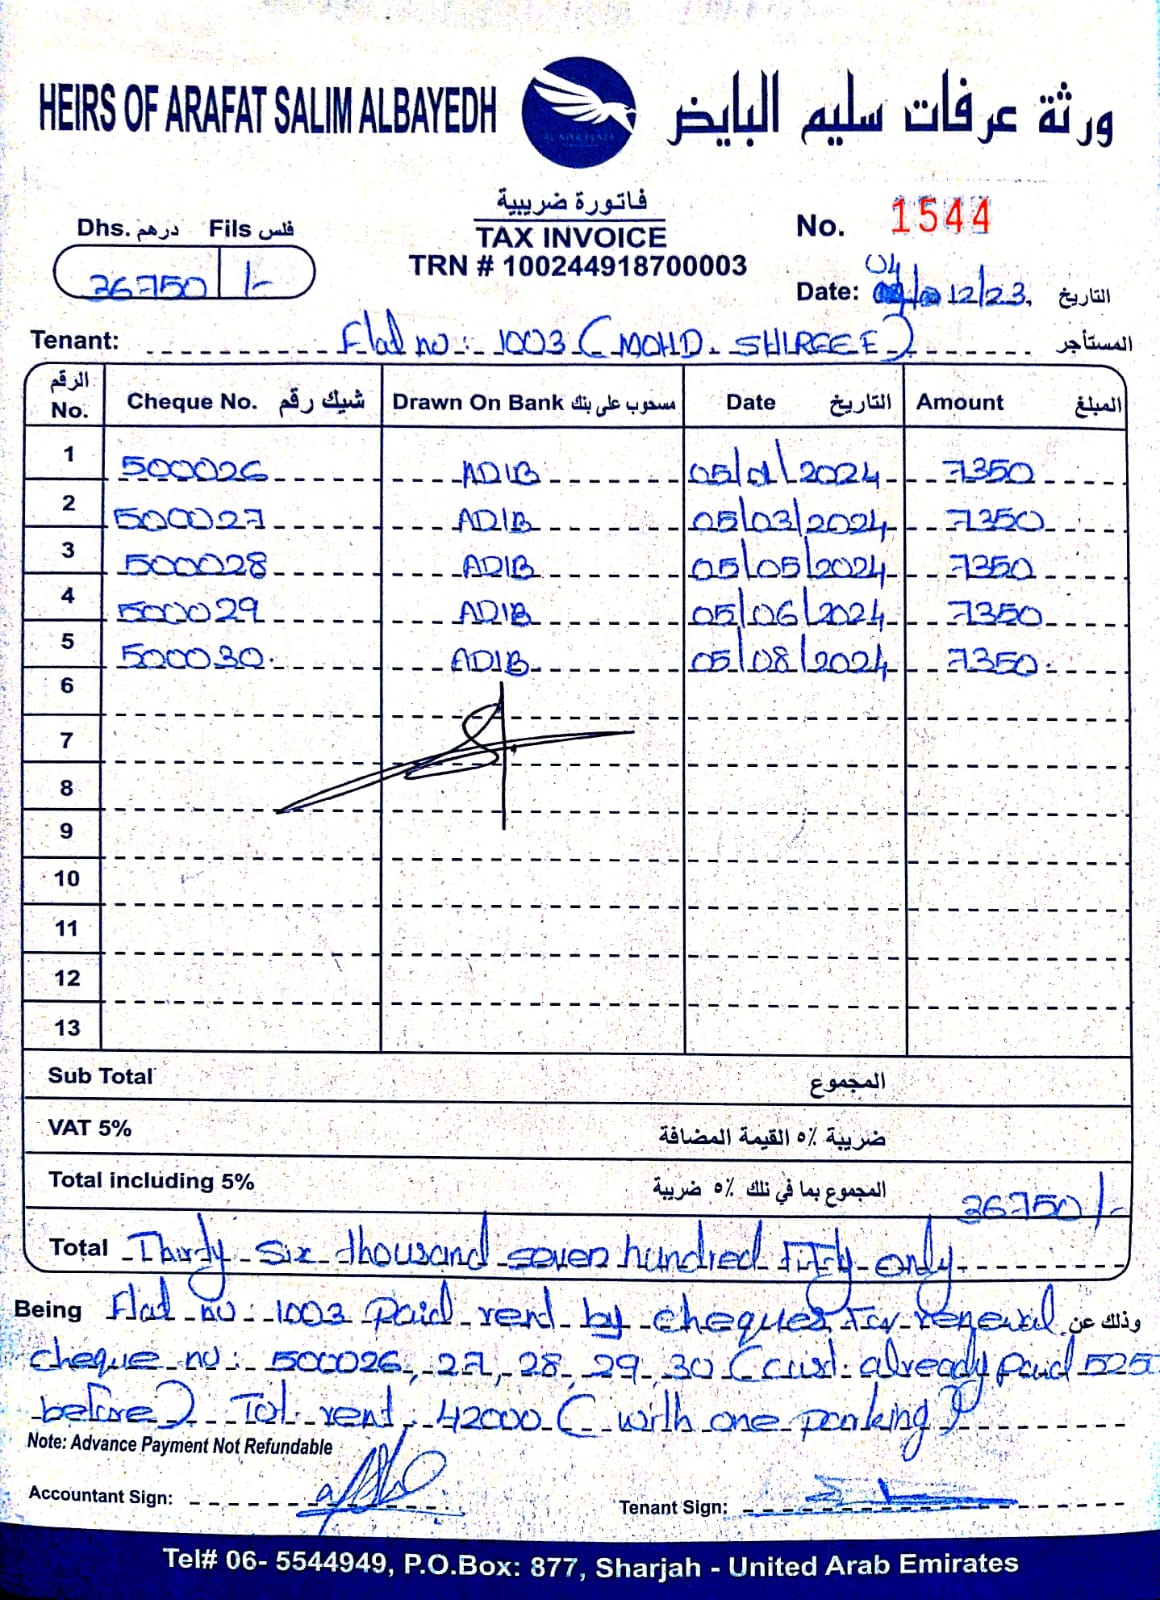 HEIRS OF ARAFAT SALIM ALBAYEDH
ورثة عرفات سليم البايض
Dhs. درهم Fils فلس
36750 /-
فاتورة ضريبية
TAX INVOICE
TRN # 100244918700003
No. 1544
Date: 04/12/23, التاريخ
Tenant: Flat no: 1003 (MOHD. SHIREEF) المستأجر
الرقم No. Cheque No. شيك رقم Drawn On Bank مسحوب على بنك Date التاريخ Amount المبلغ
1 500026 ADIB 05/01/2024 7350
2 500027 ADIB 05/03/2024 7350
3 500028 ADIB 05/05/2024 7350
4 500029 ADIB 05/06/2024 7350
5 500030 ADIB 05/08/2024 7350
6
7
8
9
10
11
12
13
Sub Total المجموع
VAT 5% ضريبة ٥٪ القيمة المضافة
Total including 5% المجموع بما في ذلك ٥٪ ضريبة 36750/-
Total Thirty six thousand seven hundred Fifty only
Being Flat no: 1003 Paid rent by cheques For renewal وذلك عن
cheque no: 500026, 27, 28, 29, 30 (cust. already paid 525
before) Tot. rent: 42000 (with one parking)
Note: Advance Payment Not Refundable
Accountant Sign:
Tenant Sign:
Tel# 06- 5544949, P.O.Box: 877, Sharjah - United Arab Emirates